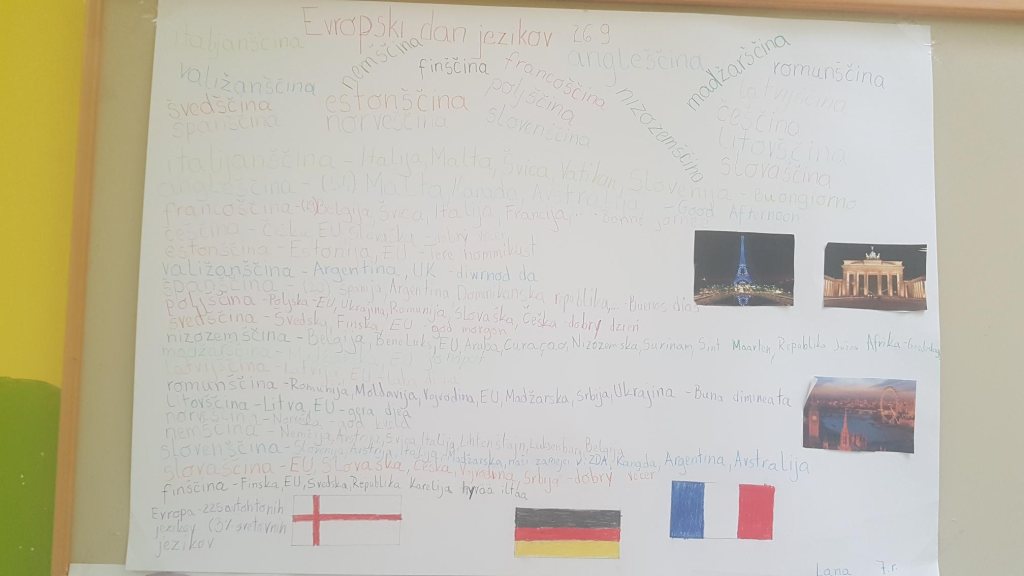 Evropski dan jezikov 26 9
italijanščina
nemščina
angleščina
madžarščina
valižanščina
finščina
francoščina
romunščina
švedščina
estonščina
poljščina
nizozemščina
latvijščina
španščina
norveščina
slovenščina
češčina
litovščina
slovaščina
italijanščina - Italija, Malta, Švica, Vatikan, Slovenija - Buongiorno
angleščina - Malta, Kanada, Avstralija - Good Afternoon
francoščina - Belgija, Švica, Italija, Francija...
češčina - Češka, EU, Slovaška - dobrý
estonščina - Estonija, EU - tere hommikust
valižanščina - Argentina, UK - diwrnod da
španščina - Španija, Argentina, Dominikanska republika,... - Buenos dias
poljščina - Poljska - EU, Ukrajina, Romunija, Slovaška, Češka - dobry dzień
švedščina - Švedska, Finska, EU - god morgon
nizozemščina - Belgija, Beneluks, EU, Aruba, Curaçao, Nizozemska, Surinam, Sint Maarten, Republika Južna Afrika
madžarščina
latvijščina - Latvija, EU
romunščina - Romunija, Moldavija, Vojvodina, EU, Madžarska, Srbija, Ukrajina - Buna dimineata
litovščina - Litva, EU
norveščina
nemščina - Nemčija, Avstrija, Švica, Italija, Lihtenštajn, Luksemburg, Belgija
slovenščina - Slovenija, Avstrija, Italija, Madžarska, naši zamejci v ZDA, Kanada, Argentina, Avstralija
slovaščina - EU, Slovaška, Češka, Vojvodina, Srbija - dobrý večer
finščina - Finska, EU, Švedska, Republika Karelija hyvää iltaa
Evropa - 225 avtohtonih
jezikov (3% svetovnih
jezikov
Lana 7.r.